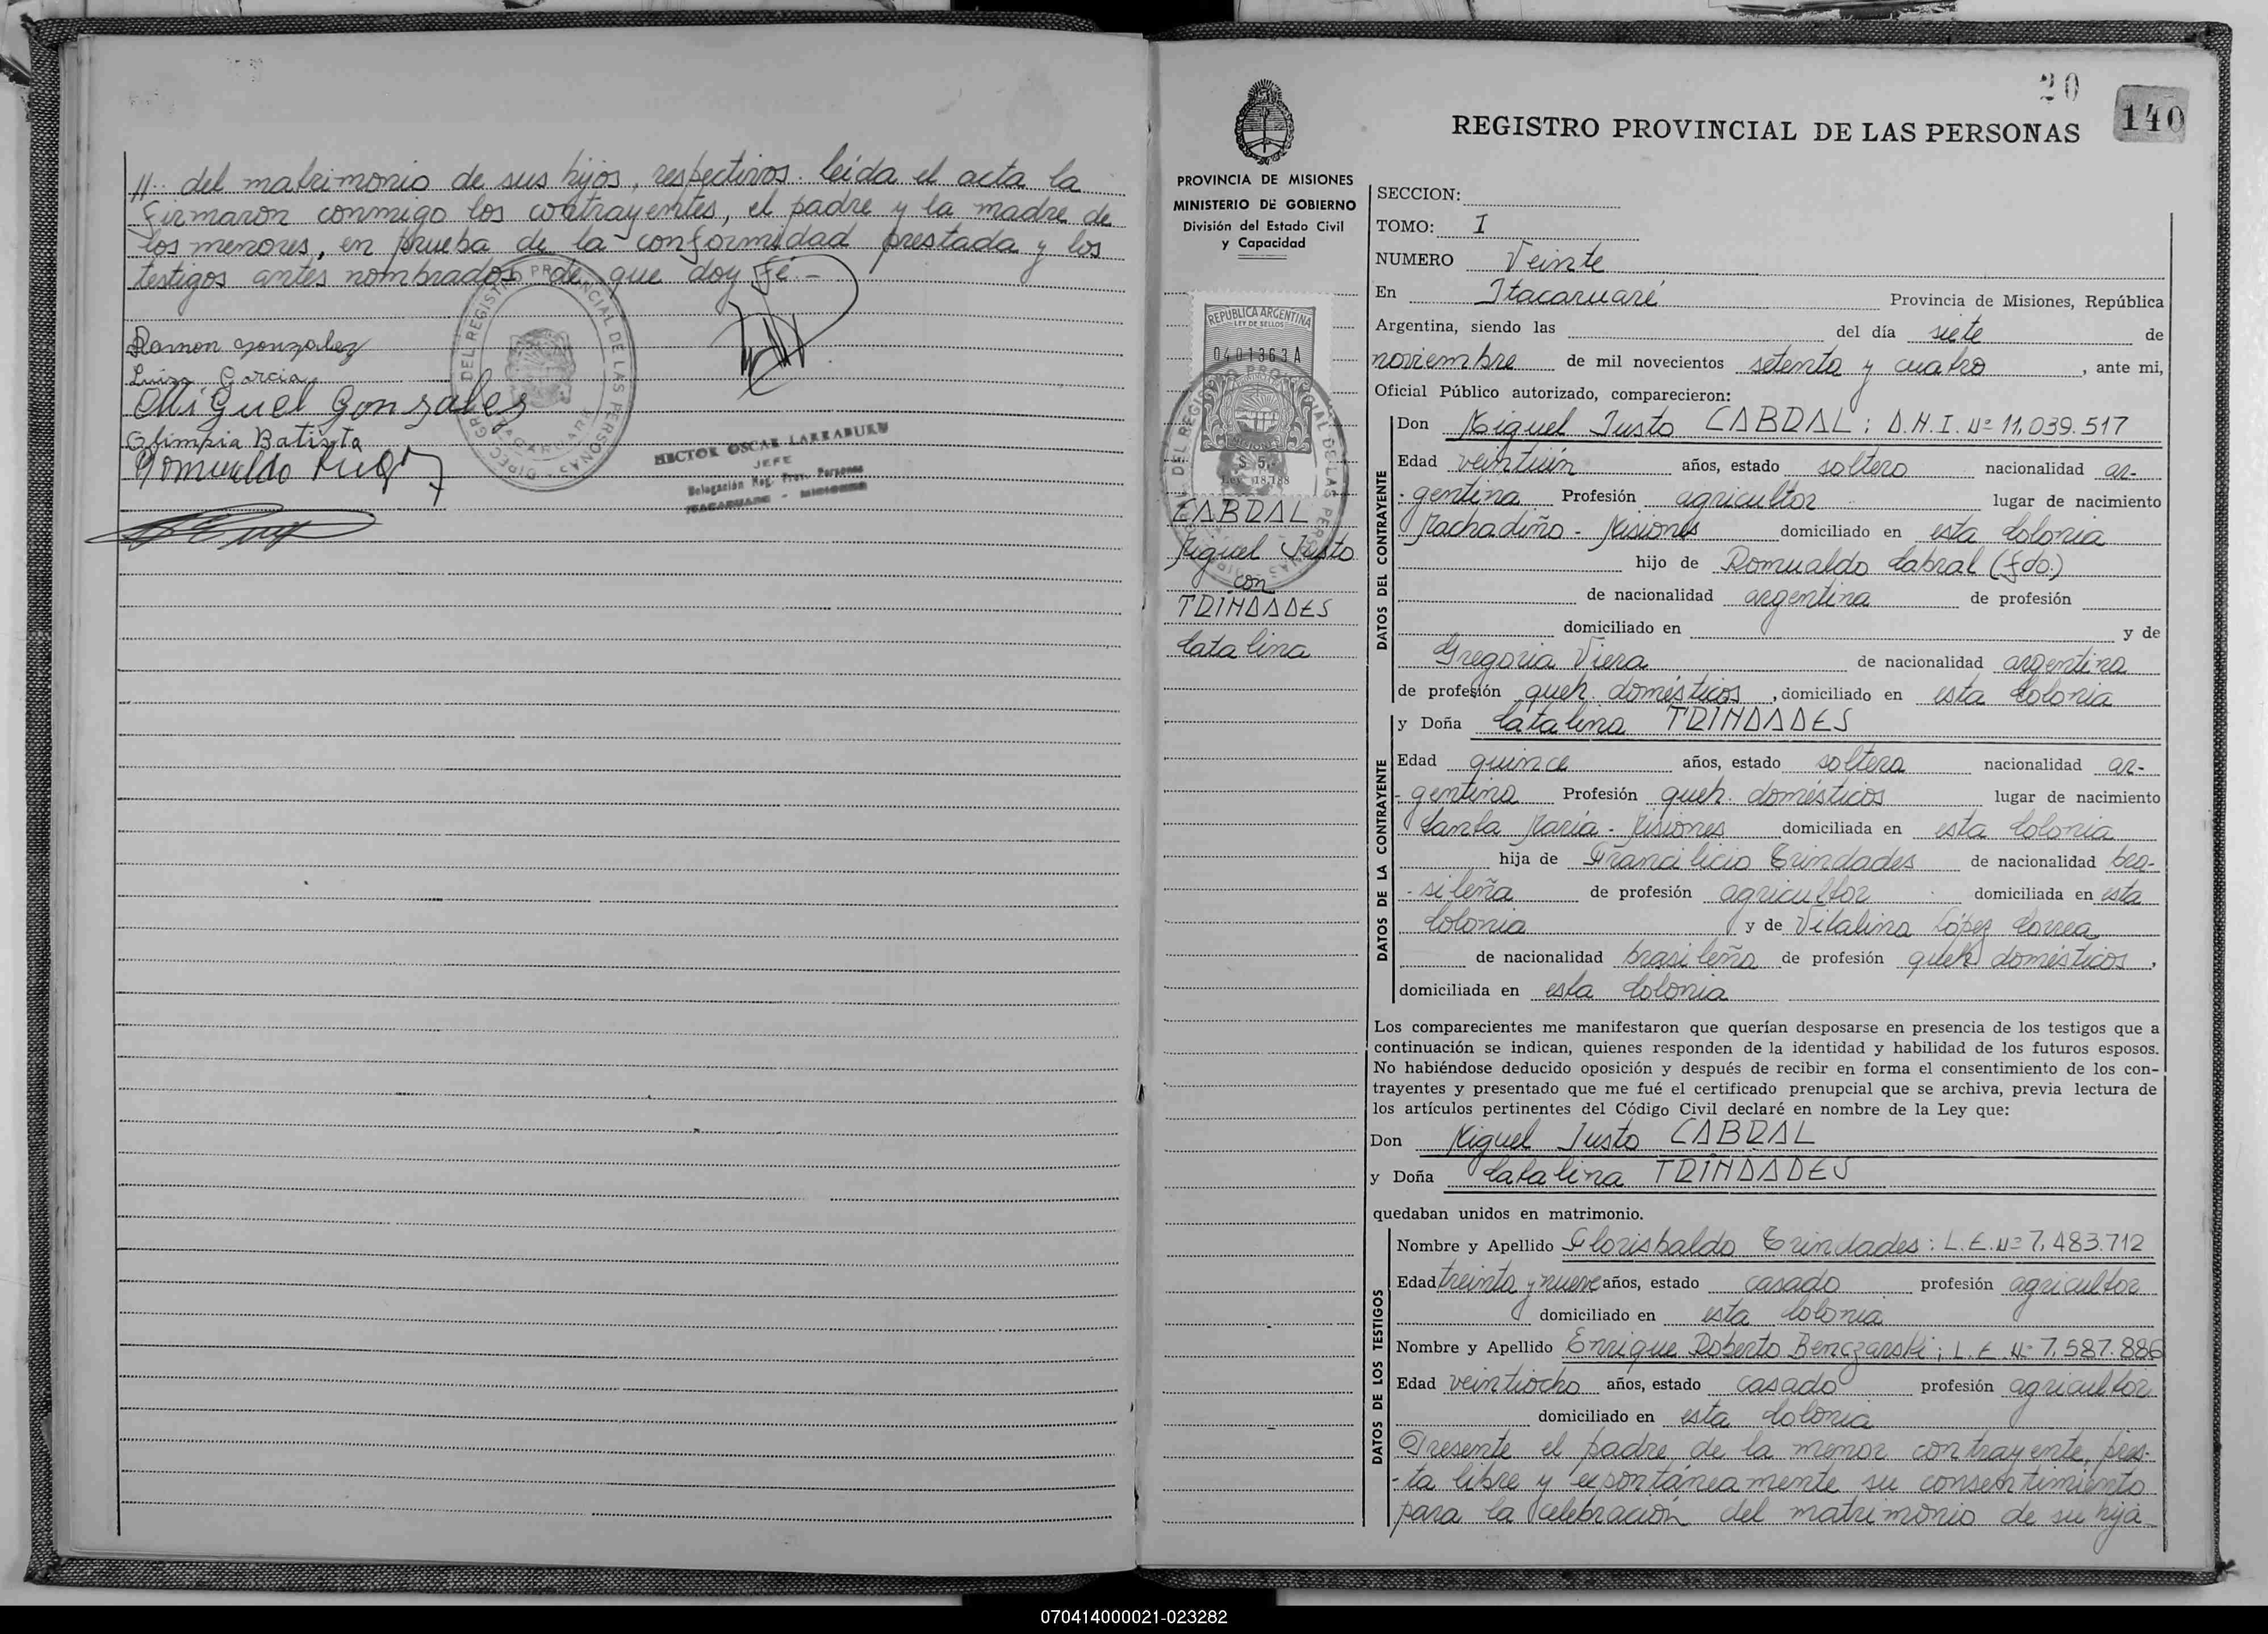 //.. del matrimonio de sus hijos, respectivos. leída el acta la
firmaron conmigo los contrayentes, el padre y la madre de
los menores, en prueba de la conformidad prestada y los
testigos antes nombrados de que doy fé.-
Ramon Gonzalez
Luisa Garcia
Miguel Gonzalez
Olimpia Batista
Romualdo
HECTOR OSCAR LARRABURU
JEFE
Delegación Reg. Prov. Personas
ITACARUARE - MISIONES
20
140
REGISTRO PROVINCIAL DE LAS PERSONAS
PROVINCIA DE MISIONES
MINISTERIO DE GOBIERNO
División del Estado Civil
y Capacidad
REPUBLICA ARGENTINA
LEY DE SELLOS
0401363A
$ 5.
Ley 18.188
CABRAL
Miguel Justo
con
TRINDADES
Catalina
SECCION:
TOMO: I
NUMERO Veinte
En Itacaruaré Provincia de Misiones, República
Argentina, siendo las del día siete de
noviembre de mil novecientos setenta y cuatro, ante mi,
Oficial Público autorizado, comparecieron:
DATOS DEL CONTRAYENTE
Don Miguel Justo CABRAL; D.N.I. Nº 11.039.517
Edad veintiún años, estado soltero nacionalidad ar-
-gentina Profesión agricultor lugar de nacimiento
Machadiño - Misiones domiciliado en esta Colonia
hijo de Romualdo Cabral (fdo.)
de nacionalidad argentina de profesión
domiciliado en y de
Gregoria Viera de nacionalidad argentina
de profesión queh. domésticos, domiciliado en esta Colonia
y Doña Catalina TRINDADES
DATOS DE LA CONTRAYENTE
Edad quince años, estado soltera nacionalidad ar-
-gentina Profesión queh. domésticos lugar de nacimiento
Santa María - Misiones domiciliada en esta Colonia
hija de Francilicio Trindades de nacionalidad bra-
-sileña de profesión agricultor domiciliada en esta
Colonia y de Vitalina López Correa
de nacionalidad brasileña de profesión queh. domésticos,
domiciliada en esta Colonia
Los comparecientes me manifestaron que querían desposarse en presencia de los testigos que a
continuación se indican, quienes responden de la identidad y habilidad de los futuros esposos.
No habiéndose deducido oposición y después de recibir en forma el consentimiento de los con-
trayentes y presentado que me fué el certificado prenupcial que se archiva, previa lectura de
los artículos pertinentes del Código Civil declaré en nombre de la Ley que:
Don Miguel Justo CABRAL
y Doña Catalina TRINDADES
quedaban unidos en matrimonio.
DATOS DE LOS TESTIGOS
Nombre y Apellido Florisbaldo Trindades: L.E. Nº 7.483.712
Edad treinta y nueve años, estado casado profesión agricultor
domiciliado en esta Colonia
Nombre y Apellido Enrique Roberto Benczarski; L.E. Nº 7.587.886
Edad veintiocho años, estado casado profesión agricultor
domiciliado en esta Colonia
Presente el padre de la menor contrayente, pres-
-ta libre y espontáneamente su consentimiento
para la celebración del matrimonio de su hija
070414000021-023282